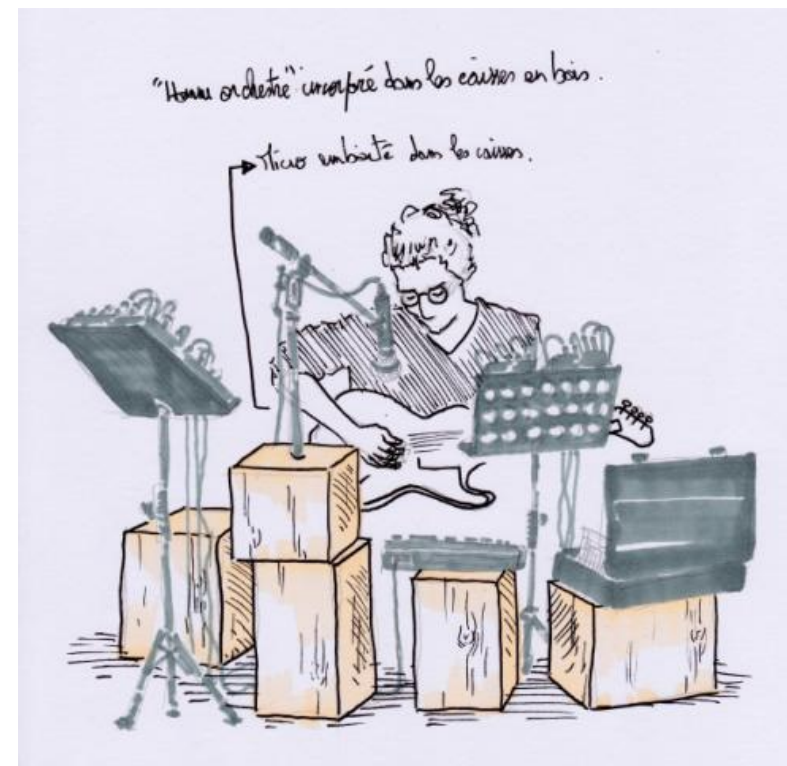 "Homme orchestre" incorporé dans les caisses en bois.
Micro emboité dans les caisses.